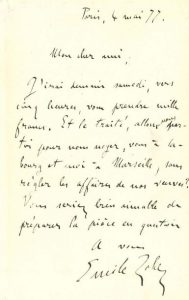 Paris, 4 mai 77.
Mon cher ami,
J'irai demain samedi, vers
cinq heures, vous prendre mille
francs. Et le traité, allons
pour nous
bourg et moi à Marseille, sous
régler les affaires de nos
Vous seriez bien aimable de
préparer la pièce en question
A vous
Emile Zola